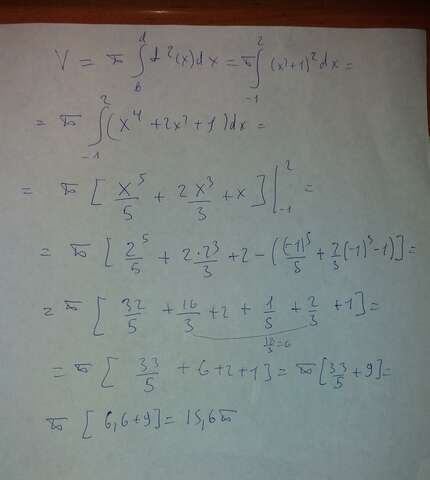 V = π ∫_b^d d²(x)dx = π ∫_{-1}^2 (x²+1)²dx =
= π ∫_{-1}^2 (x⁴ + 2x² + 1)dx =
= π [ x⁵/5 + 2x³/3 + x ] |_{-1}^2 =
= π [ 2⁵/5 + 2·2³/3 + 2 - ((-1)⁵/5 + 2/3 (-1)³ - 1) ] =
= π [ 32/5 + 16/3 + 2 + 1/5 + 2/3 + 1 ] =
18/3 = 6
= π [ 33/5 + 6 + 2 + 1 ] = π [ 33/5 + 9 ] =
π [ 6,6 + 9 ] = 15,6π